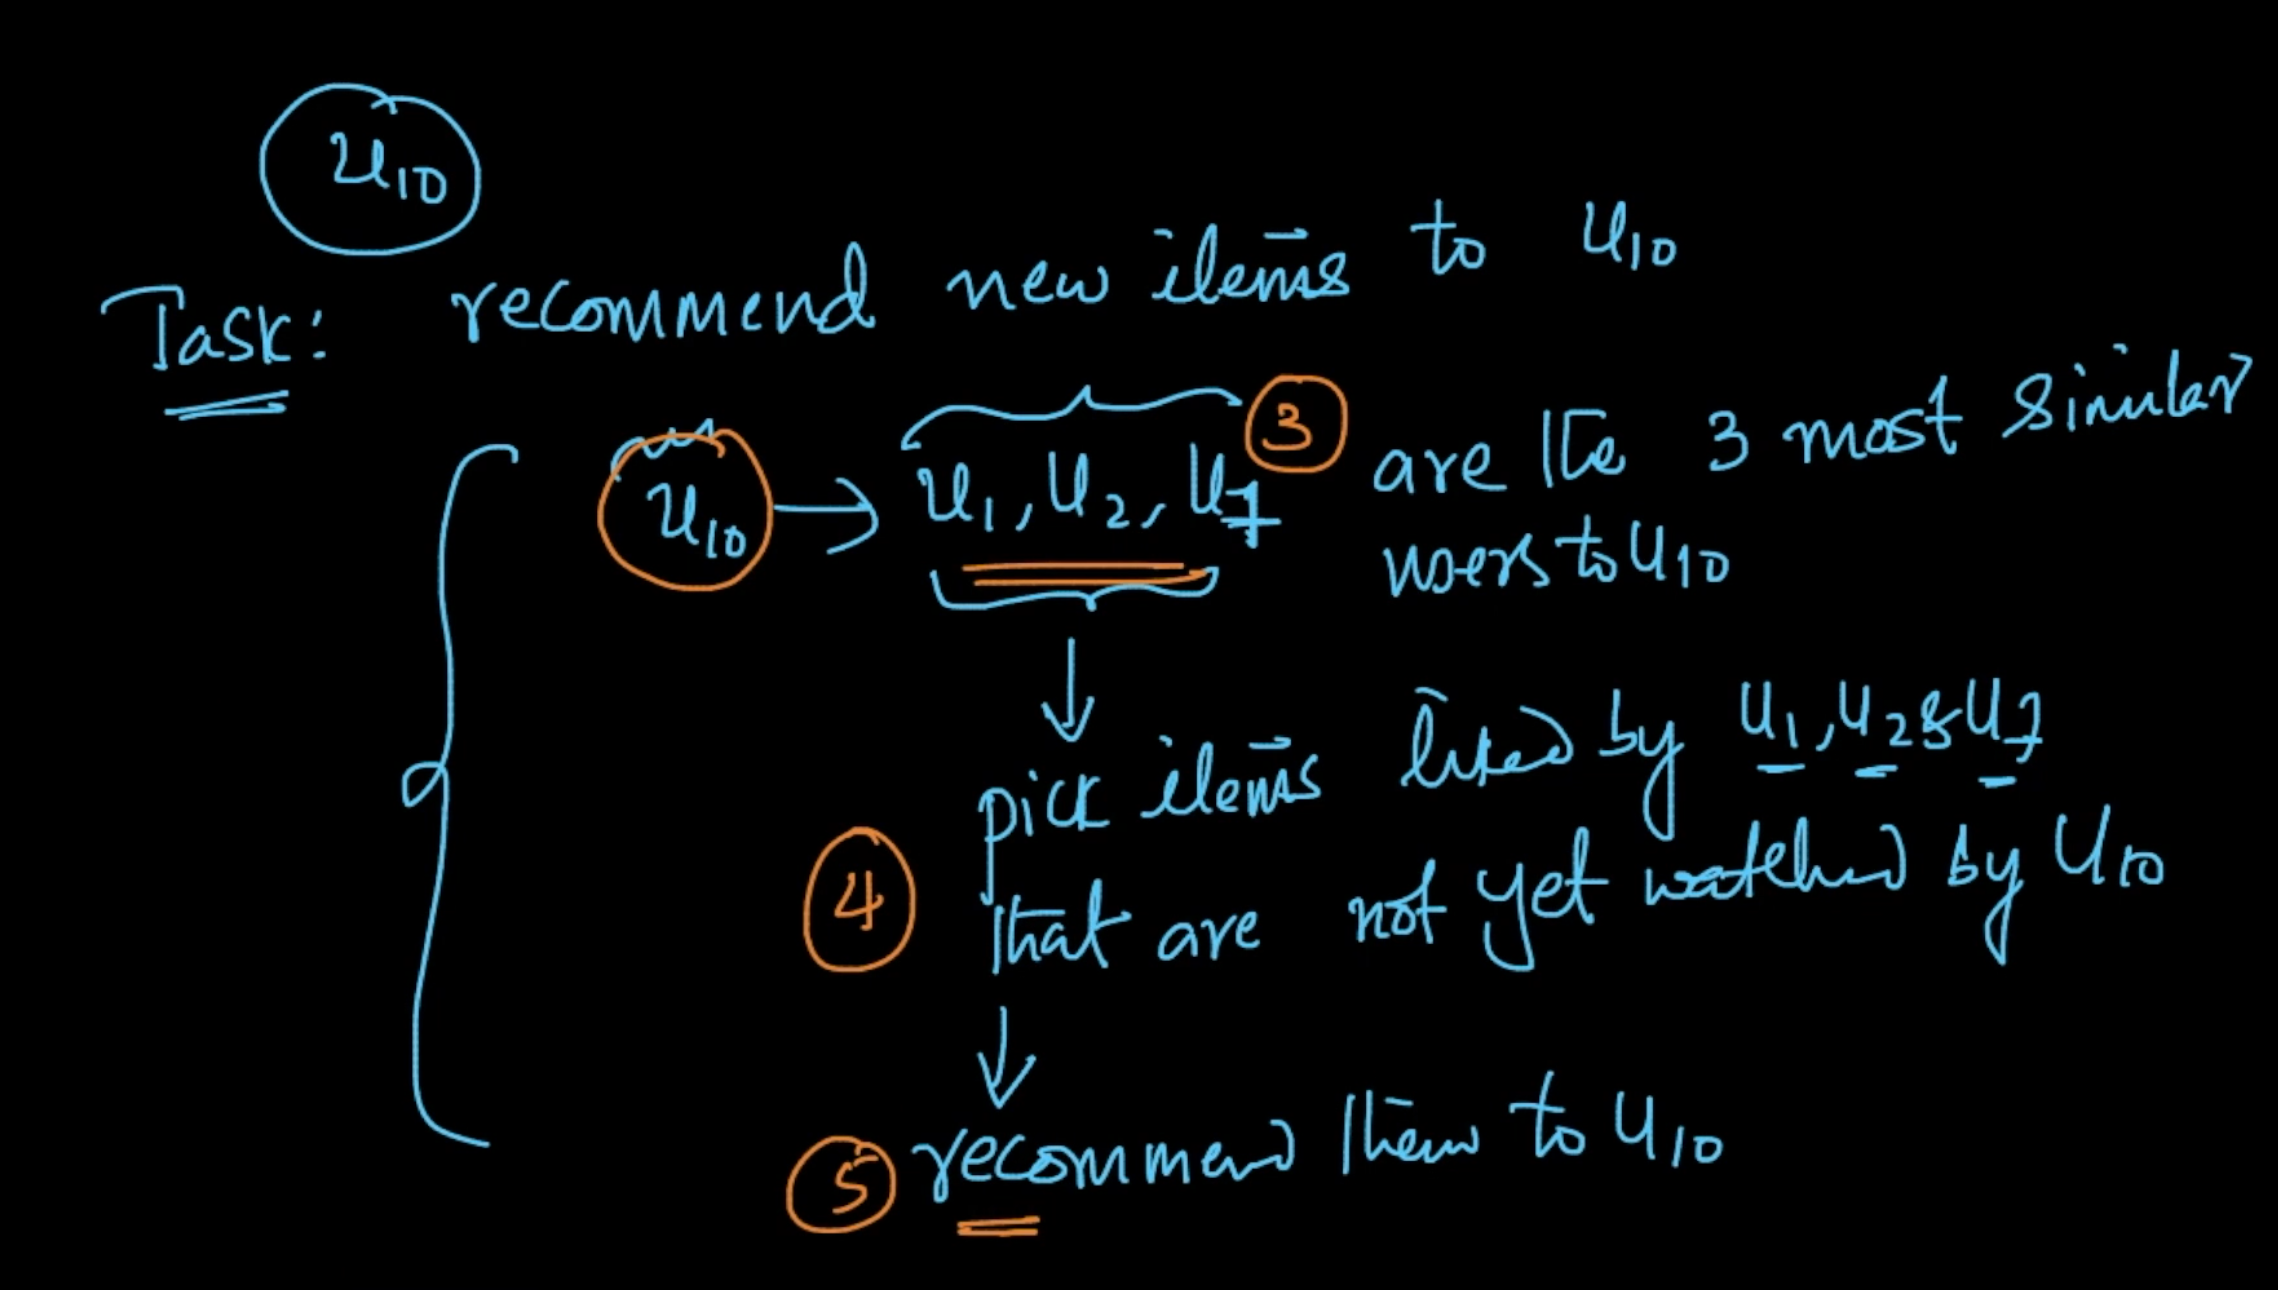 u₁₀
Task: recommend new items to u₁₀
u₁₀ → u₁, u₂, u₇ ③ are the 3 most similar
users to u₁₀
pick items liked by u₁, u₂ & u₇
④ that are not yet watched by u₁₀
⑤ recommend them to u₁₀